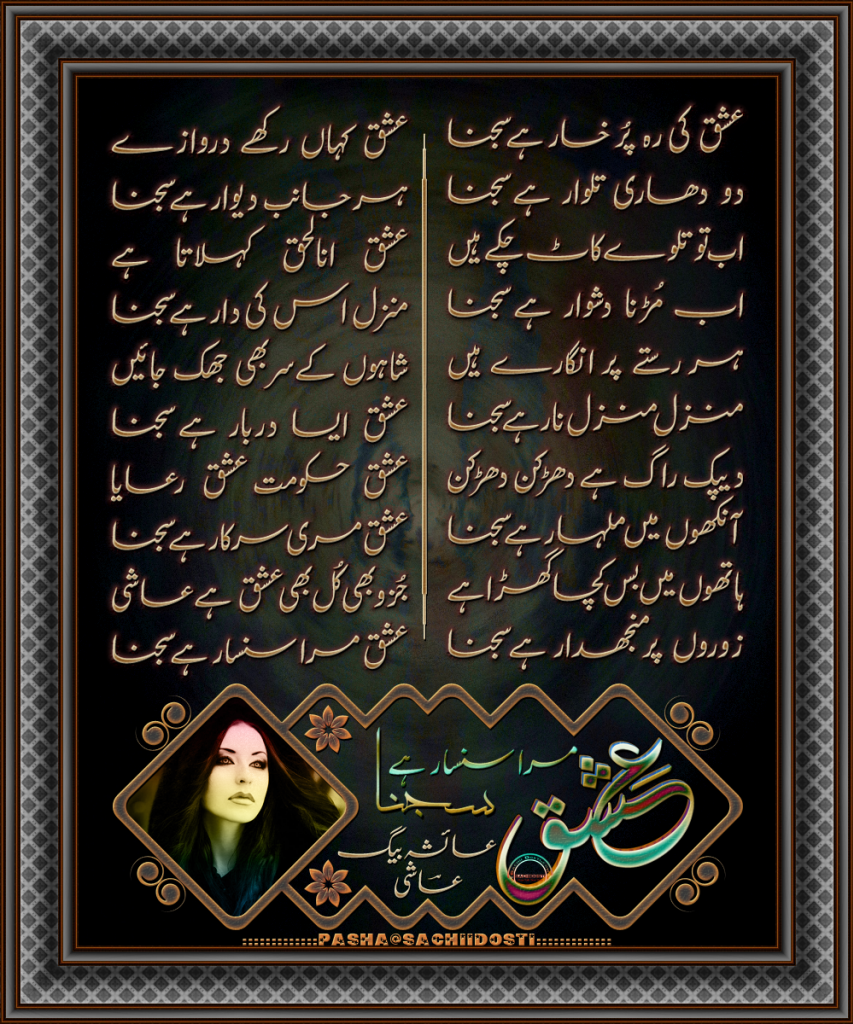 عشق کی رہ پُر خار ہے سجنا
دو دھاری تلوار ہے سجنا
اب تو تلوے کاٹ چکے ہیں
اب مُڑنا دشوار ہے سجنا
ہر رستے پر انگارے ہیں
منزل منزل نار ہے سجنا
دیپک راگ ہے دھڑکن دھڑکن
آنکھوں میں ملہار ہے سجنا
ہاتھوں میں بس کچا گھڑا ہے
زوروں پر منجھدار ہے سجنا
عشق کہاں رکھے دروازے
ہر جانب دیوار ہے سجنا
عشق انالحق کہلاتا ہے
منزل اس کی دار ہے سجنا
شاہوں کے سر بھی جھک جائیں
عشق ایسا دربار ہے سجنا
عشق حکومت عشق رعایا
عشق مری سرکار ہے سجنا
جُزو بھی کُل بھی عشق ہے عاشی
عشق مرا سنسار ہے سجنا
عشق
مرا سنسار ہے
سجنا
عائشہ بیگ
عاشی
::::::::::::::PASHA@SACHIIDOSTI::::::::::::::